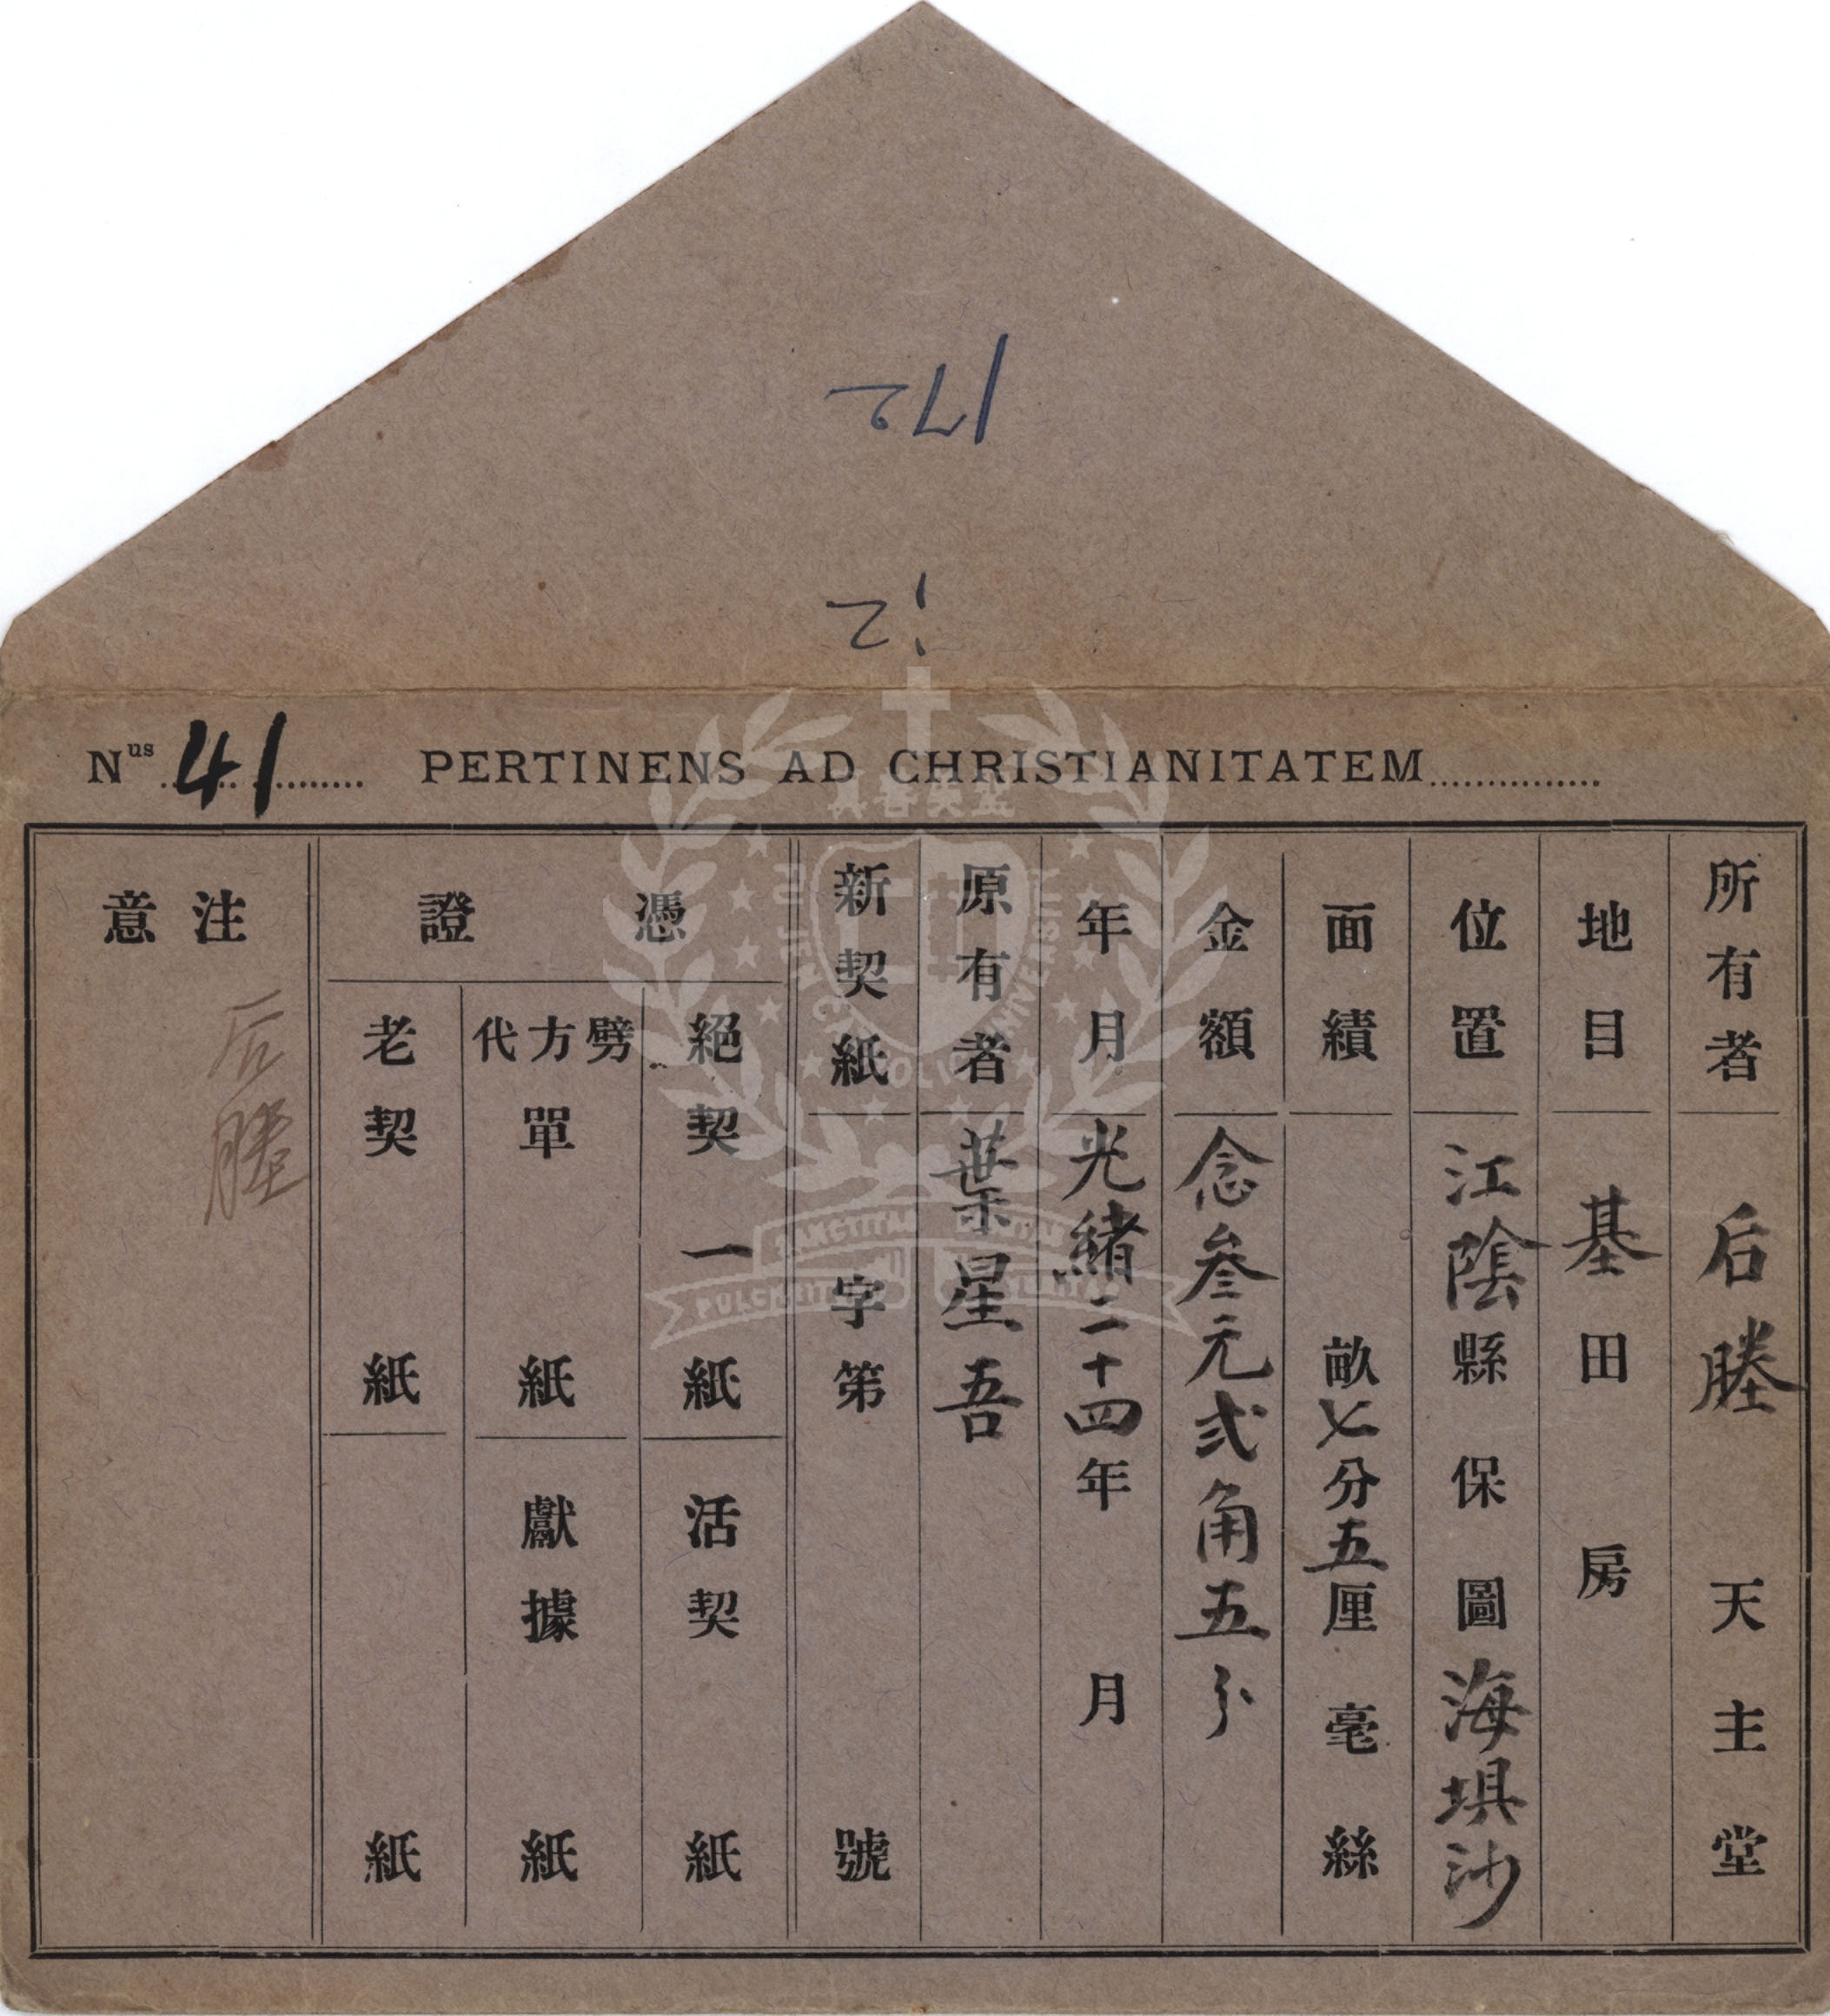 172
N^us 41 PERTINENS AD CHRISTIANITATEM
所有者 后塍 天主堂
地目 基田 房
位置 江陰縣 保 圖 海埧沙
面績 畝七分五厘 毫 絲
金額 念叁元弍角五分
年月 光緒二十四年 月
原有者 葉星吾
新契紙 字第 號
憑證
絕契 一紙
活契 紙
劈方代單 紙
獻據 紙
老契 紙
紙
注意
后塍